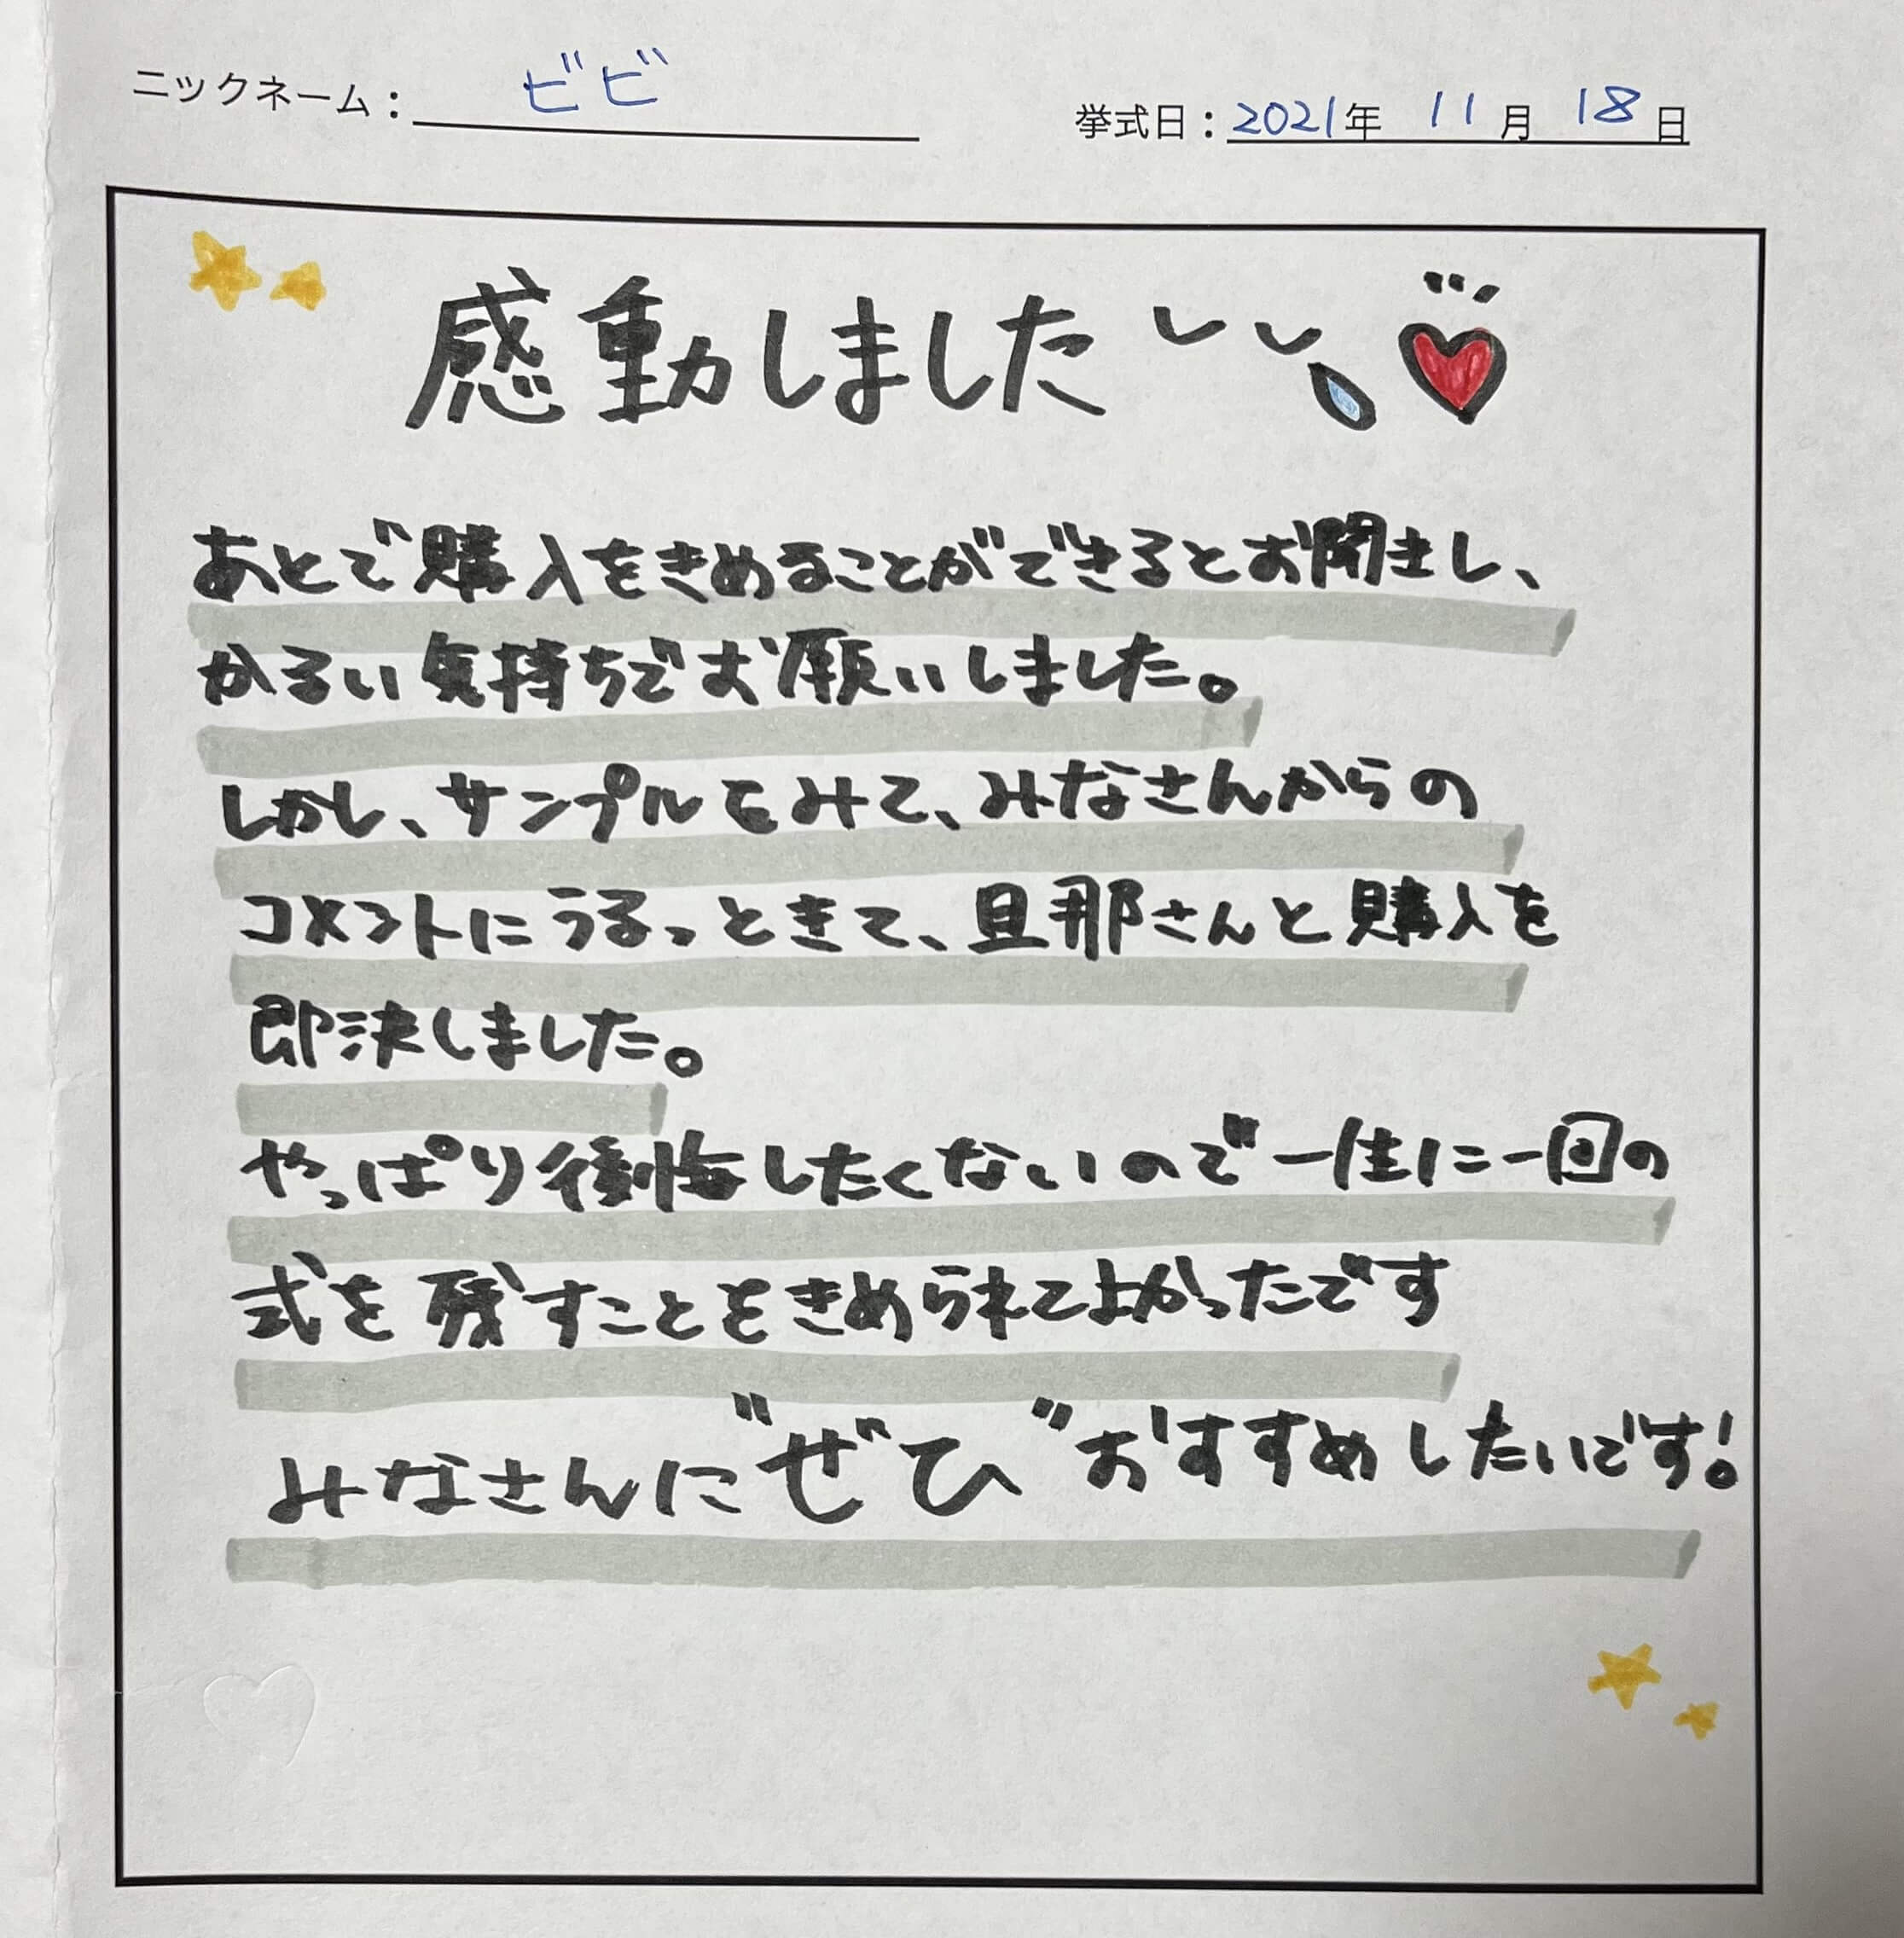 ニックネーム：ビビ
挙式日：2021年 11月 18日
感動しました
あとで購入をきめることができるとお聞きし、
かるい気持ちでお願いしました。
しかし、サンプルをみて、みなさんからの
コメントにうるっときて、旦那さんと購入を
即決しました。
やっぱり後悔したくないので一生に一回の
式を残すことをきめられてよかったです
みなさんに"ぜひ"おすすめしたいです！